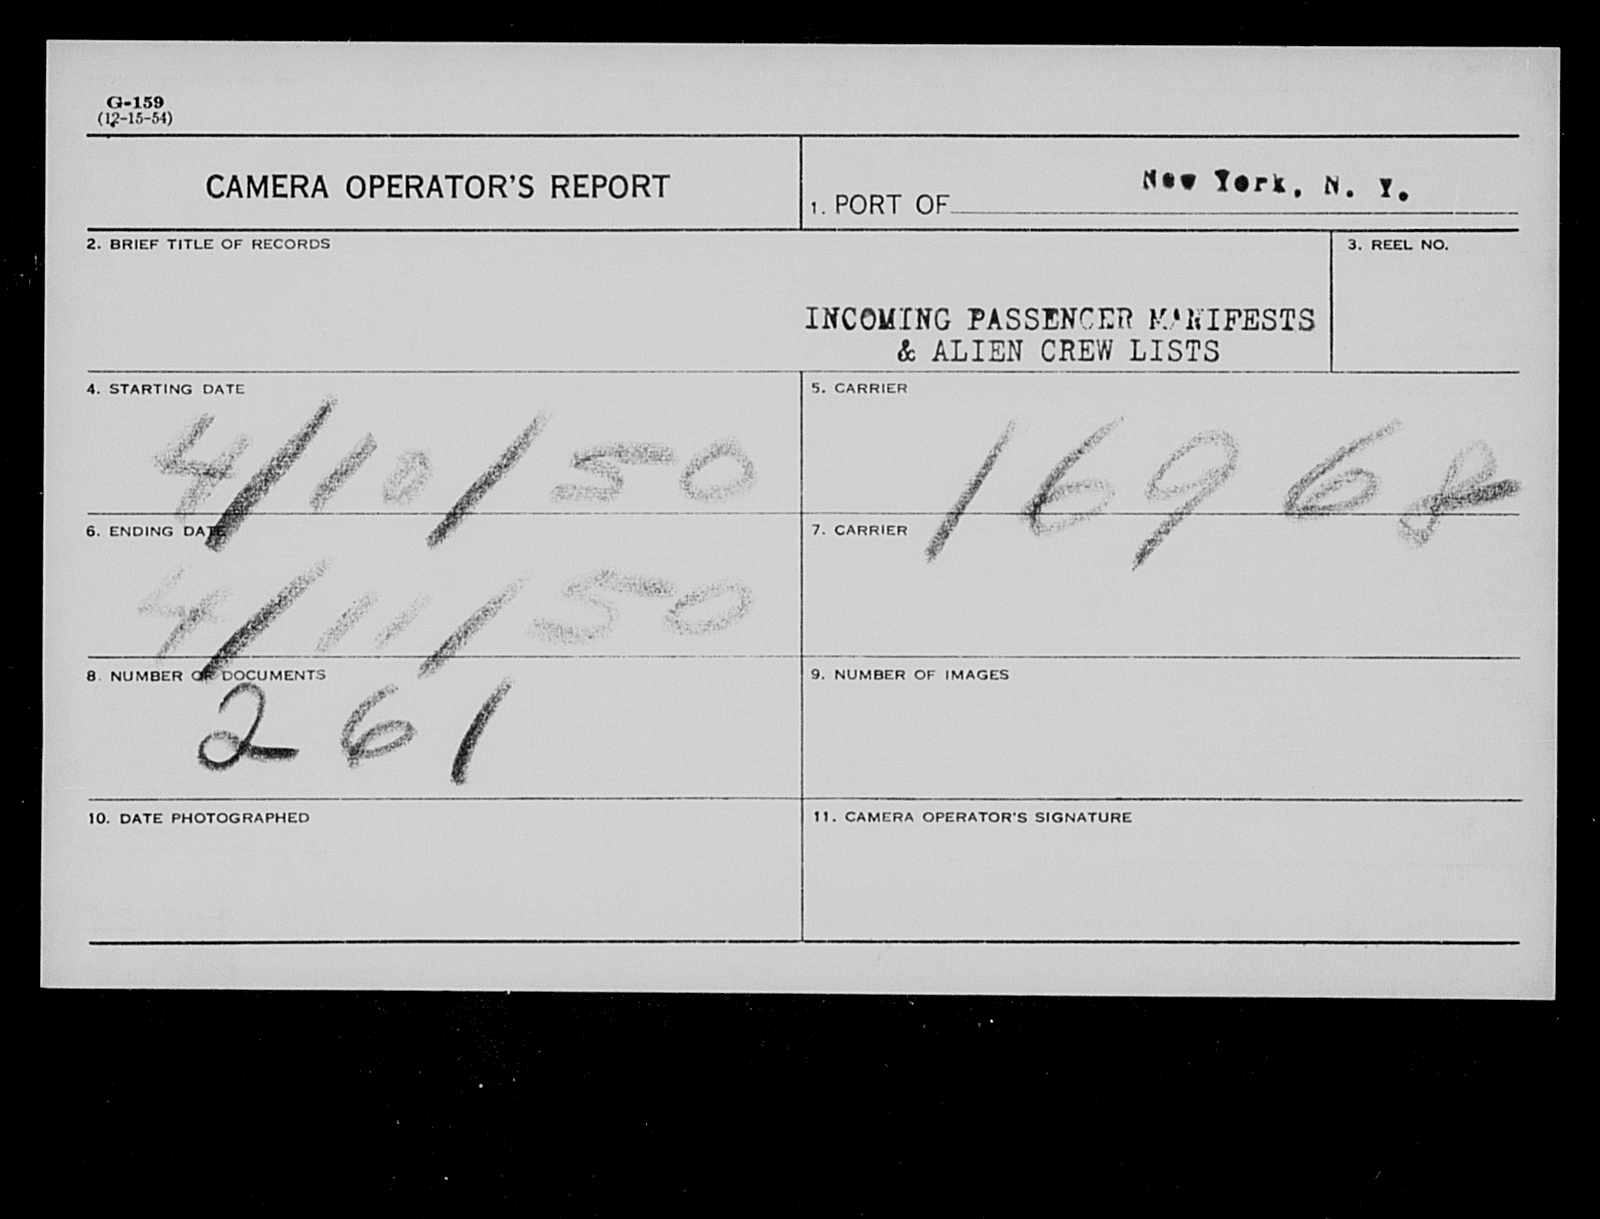 G-159
(12-15-54)
CAMERA OPERATOR'S REPORT
1. PORT OF New York, N. Y.
2. BRIEF TITLE OF RECORDS
3. REEL NO.
INCOMING PASSENGER MANIFESTS
& ALIEN CREW LISTS
4. STARTING DATE
4/10/50
5. CARRIER
16968
6. ENDING DATE
4/11/50
7. CARRIER
8. NUMBER OF DOCUMENTS
261
9. NUMBER OF IMAGES
10. DATE PHOTOGRAPHED
11. CAMERA OPERATOR'S SIGNATURE